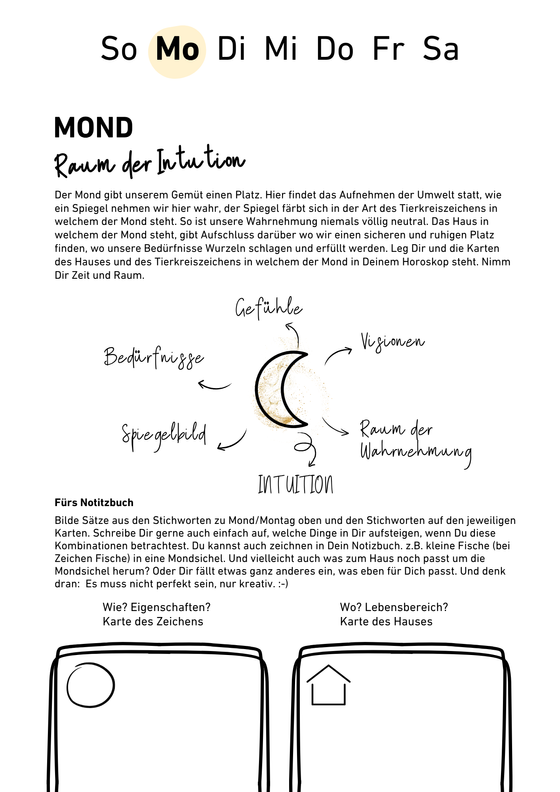 So Mo Di Mi Do Fr Sa
MOND
Raum der Intution
Der Mond gibt unserem Gemüt einen Platz. Hier findet das Aufnehmen der Umwelt statt, wie
ein Spiegel nehmen wir hier wahr, der Spiegel färbt sich in der Art des Tierkreiszeichens in
welchem der Mond steht. So ist unsere Wahrnehmung niemals völlig neutral. Das Haus in
welchem der Mond steht, gibt Aufschluss darüber wo wir einen sicheren und ruhigen Platz
finden, wo unsere Bedürfnisse Wurzeln schlagen und erfüllt werden. Leg Dir und die Karten
des Hauses und des Tierkreiszeichens in welchem der Mond in Deinem Horoskop steht. Nimm
Dir Zeit und Raum.
Gefühle
Visionen
Bedürfnisse
Spiegelbild
Raum der
Wahrnehmung
INTUITION
Fürs Notitzbuch
Bilde Sätze aus den Stichworten zu Mond/Montag oben und den Stichworten auf den jeweiligen
Karten. Schreibe Dir gerne auch einfach auf, welche Dinge in Dir aufsteigen, wenn Du diese
Kombinationen betrachtest. Du kannst auch zeichnen in Dein Notizbuch. z.B. kleine Fische (bei
Zeichen Fische) in eine Mondsichel. Und vielleicht auch was zum Haus noch passt um die
Mondsichel herum? Oder Dir fällt etwas ganz anderes ein, was eben für Dich passt. Und denk
dran: Es muss nicht perfekt sein, nur kreativ. :-)
Wie? Eigenschaften?
Karte des Zeichens
Wo? Lebensbereich?
Karte des Hauses